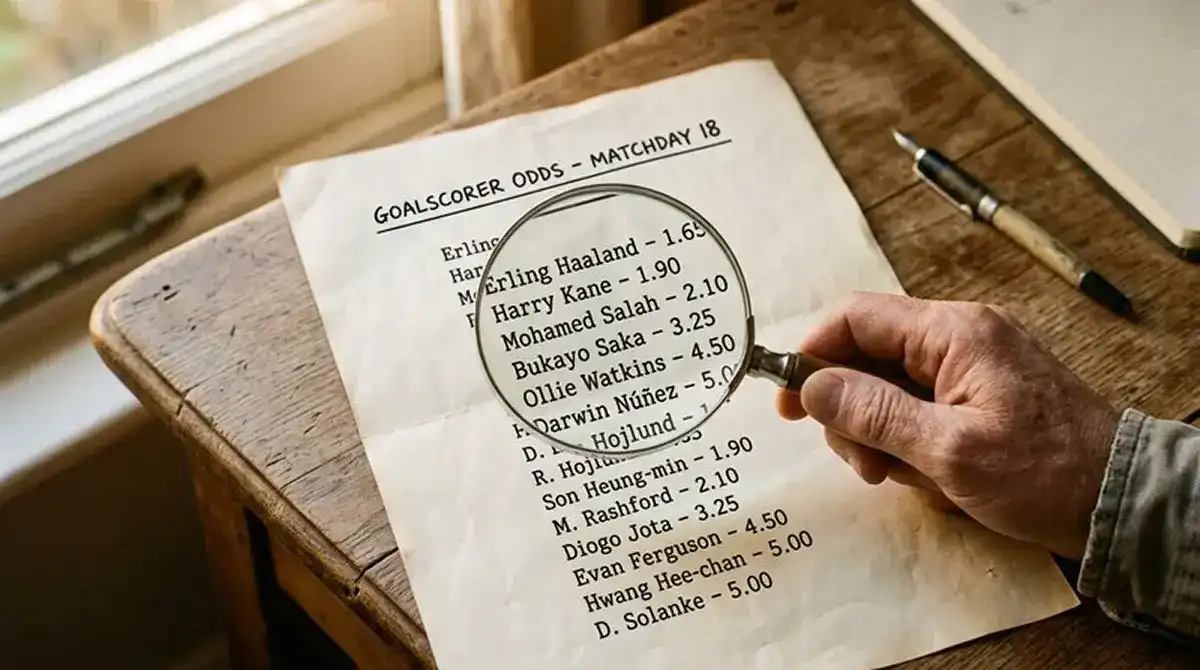 GOALSCORER ODDS – MATCHDAY 18
Erling
Erling Haaland – 1.65
Harry Kane – 1.90
Mohamed Salah – 2.10
Bukayo Saka – 3.25
Ollie Watkins – 4.50
Darwin Núñez – 5.0
Hojlund –
D.
R.
Son Heung-min – 1.90
M. Rashford – 2.10
Diogo Jota – 3.25
Evan Ferguson – 4.50
Hwang Hee-chan – 5.00
D. Solanke – 5.00